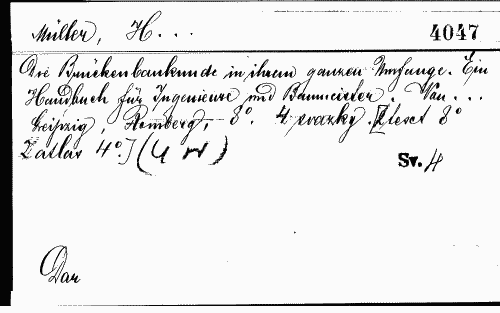 Müller, H... 4047
Die Brückenbaukunde in ihrem ganzen Umfange. Ein
Handbuch für Ingenieure und Baumeister. Von...
Leipzig, Romberg, 8° 4 svazky. [3 text 8°
1 atlas 4°.] (4 w)
Sv. 4
Dar